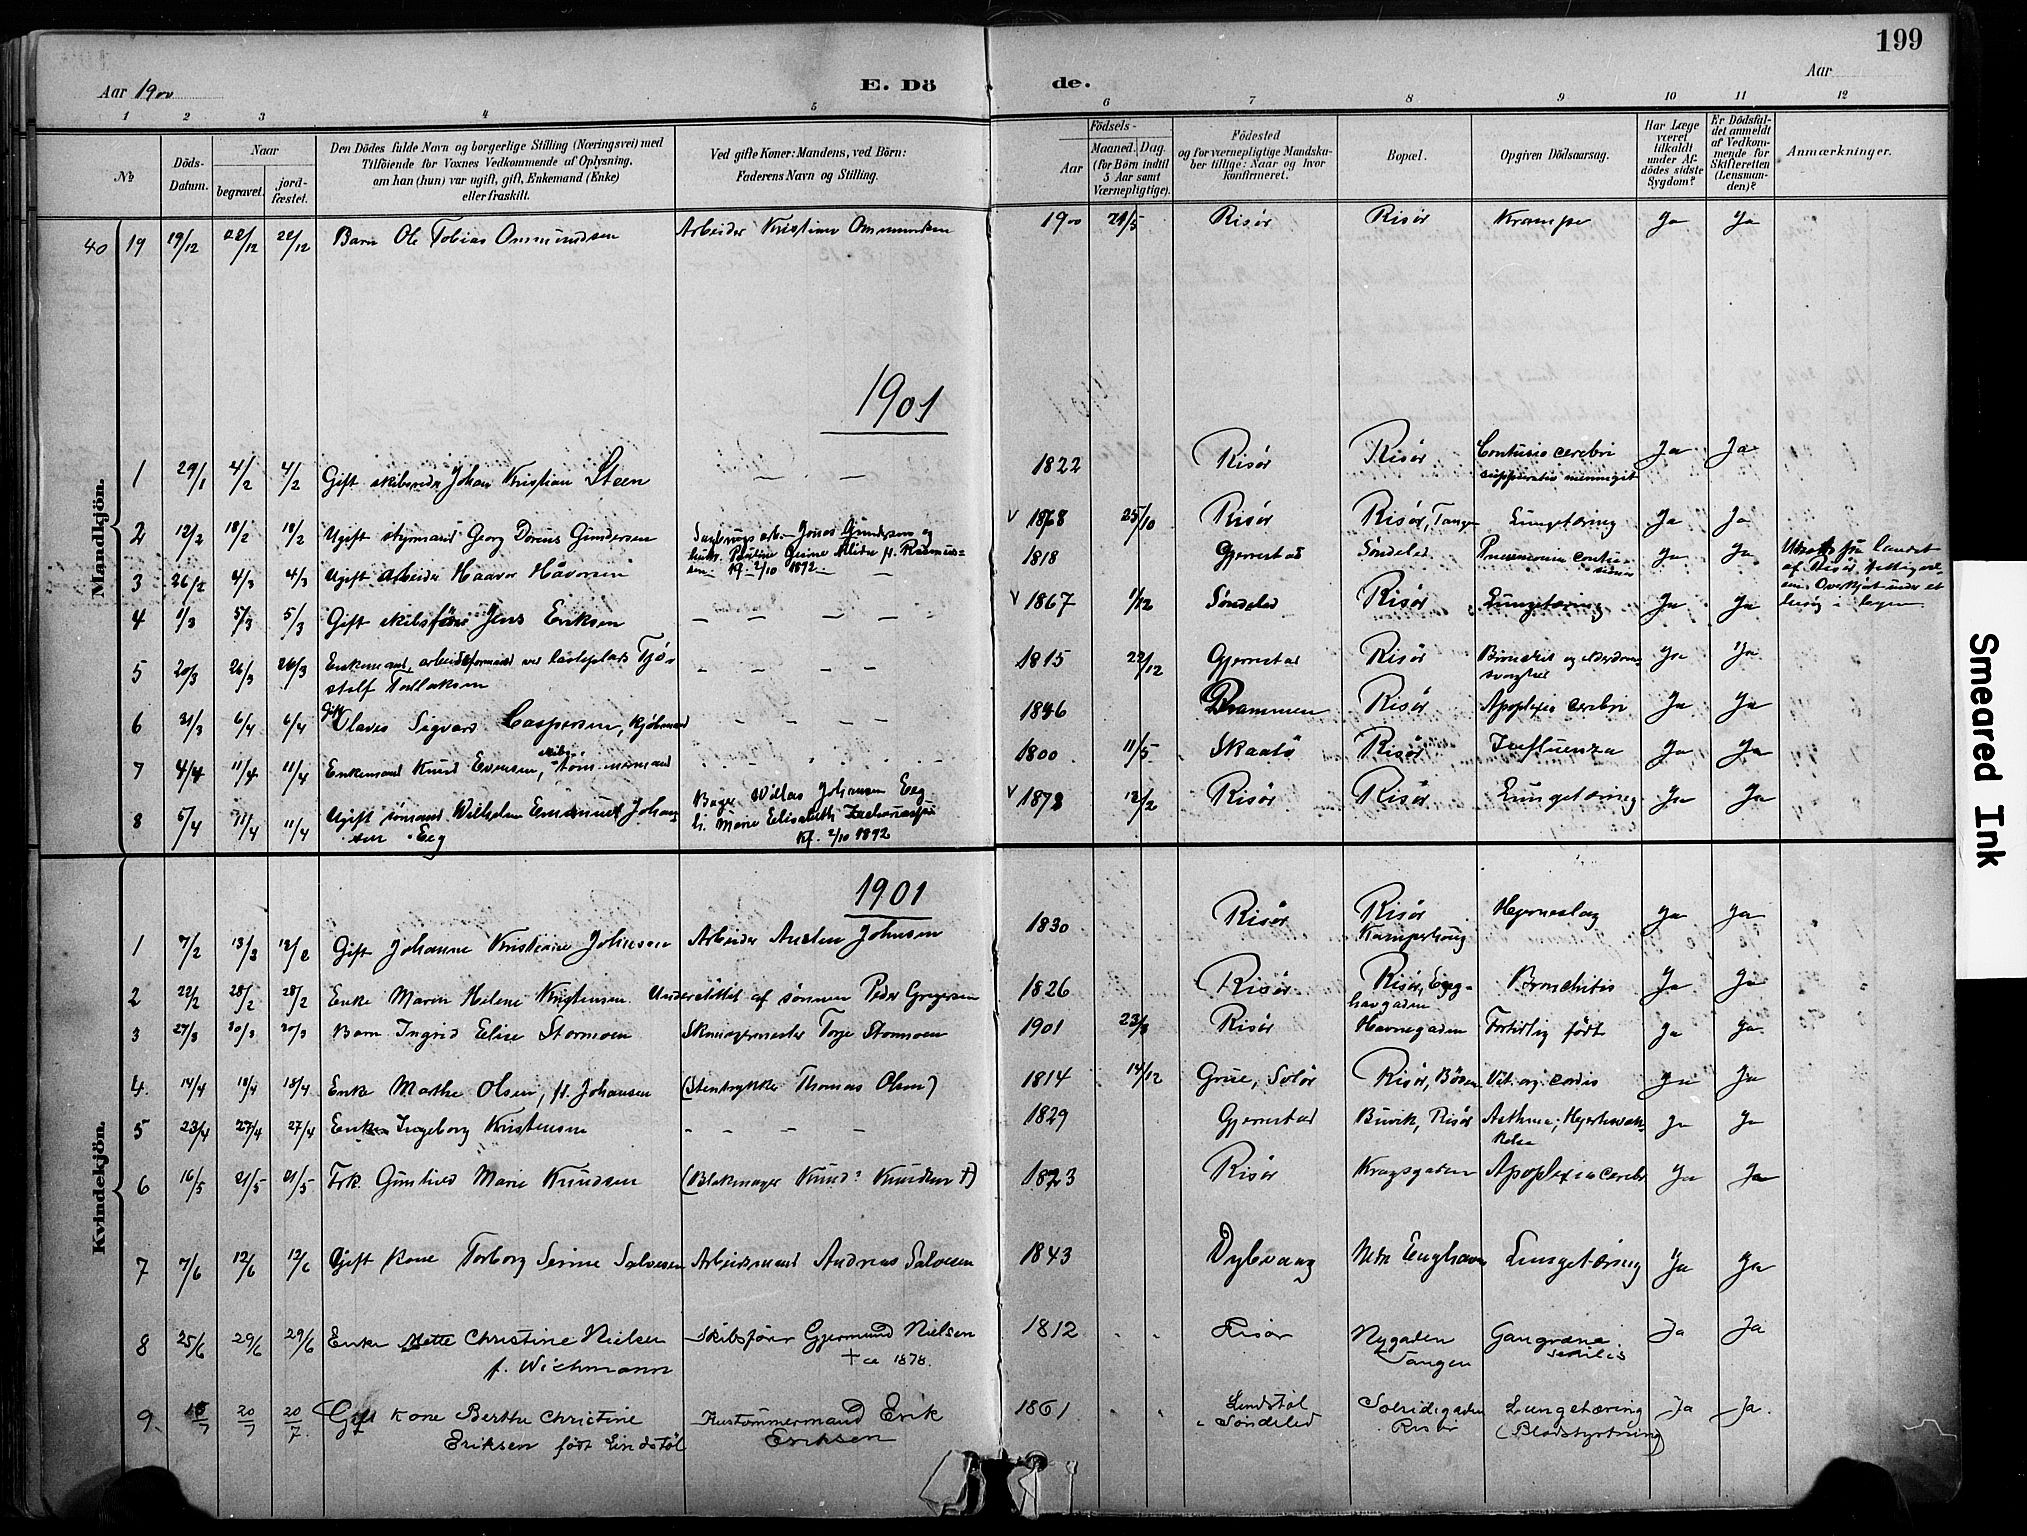 199
Aar 1900 E. Dö de. Aar
1 2 3 4 5 6 7 8 9 10 11 12
№
Döds-
Datum.
Naar
begravet.
jord-
fæstet.
Den Dödes fulde Navn og borgerlige Stilling (Næringsvei) med
Tilföiende for Voxnes Vedkommende af Oplysning,
om han (hun) var ugift, gift, Enkemand (Enke)
eller fraskilt.
Ved gifte Koner: Mandens, ved Börn:
Faderens Navn og Stilling.
Födsels-
Aar
Maaned. Dag.
(for Börn indtil
5 Aar samt
Værnepligtige).
Födested
og for værnepligtige Mandska-
ber tillige: Naar og hvor
konfirmeret.
Bopæl.
Opgiven Dödsaarsag.
Har Læge
været
tilkaldt
under Af-
dödes sidste
Sygdom?
Er Dödsfal-
det anmeldt
af Vedkom-
mende for
Skifteretten
(Lensman-
den)?
Anmærkninger.
Mandkjön.
40 19 19/12 22/12 22/12 Barn Ole Tobias Ommundsen Arbeider Kristian Ommundsen 1900 Risör Risör Krampe Ja Ja
1901
1 29/1 4/2 4/2 Gift skibsreder Johan Kristian Steen — — — 1822 Risör Risör Contusio cerebri Ja Ja
2 12/2 18/2 18/2 Ugift styrmand Georg Gundersen 1868 25/10 Risör Risör, Tangen Lungetæring Ja Ja
2/10 1892
3 26/2 4/3 4/3 Ugift arbeider Haavor Håvorsen 1818 Gjerrestad Söndeled Ja Ja
4 1/3 5/3 5/3 Gift skibsförer Jens Eriksen — — — — 1867 1/12 Söndeled Risör Lungetæring Ja Ja
5 20/3 26/3 26/3 Enkemand, arbeidsformand ved Tjö-
stolf Tallaksen — — — — 1815 22/12 Gjerrestad Risör Ja Ja
6 31/3 6/4 6/4 Gift Olaves Sigvard Caspersen, kjöbmand — — — — Drammen Risör Apoplexia cerebri Ja Ja
7 4/4 11/4 11/4 Enkemand Knud Evensen, skibs-tömmermand 1800 11/5 Skaatö Risör Influenza Ja Ja
8 5/4 11/4 11/4 Ugift sömand Wilhelm Emanuel Johan-
sen Eeg
Johansen Eeg
Marie Elisabeth
Kf. 2/10 1892
12/2 Risör Risör Lungetæring Ja Ja
Kvindekjön.
1901
1 7/2 13/2 Gift Johanne Kristiane Johnsen Arbeider Austen Johnsen 1830 Risör Risör
Kamperhoug Hjerneslag Ja Ja
2 22/2 28/2 28/2 Enke Maren Helene Kristensen. Understöttet af sönnen Peder Gregersen 1826 Risör Risör, Eng-
havgaden Bronchitis Ja Ja
3 27/3 30/3 30/3 Barn Ingrid Elise Stormoen Skomagermester Torje Stormoen 1901 23/3 Risör Havnegaden Fortidlig födt Ja Ja
4. 14/4 18/4 18/4 Enke Marthe Olsen, f. Johansen (Stentrykker Thomas Olsen) 1814 14/12 Grue, Solör Risör, Vit. org. cordis Ja Ja
5 23/4 27/4 27/4 Enke Ingeborg Kristensen — — — — 1829 Gjerrestad Buvik, Risör Ja Ja
6 16/5 21/5 21/5 Frk. Gunhild Marie Knudsen (Blokmager Knud Knudsen †) 1823 Risör Kragsgaden Apoplexia cerebri Ja Ja
7 7/6 12/6 12/6 Gift Kone Torborg Serine Salvesen Arbeidsmand Andreas Salvesen 1843 Dybvaag Nedre Enghaven Lungetæring Ja Ja
8 25/6 29/6 29/6 Enke Mette Christine Nielsen
f. Wichmann
Skibsförer Gjermund Nielsen
† ca 1878.
1812 Risör Nygaden
Tangen
Gangræna
senilis Ja Ja
9. 20/7 20/7 Gift Kone Berthe Christine
Eriksen födt Lindstöl
Hustömmermand Erik
Eriksen
1861 Lindstöl
Söndeled
Solsidigaden
Risör
Lungetæring
(Blodstyrtning) Ja Ja.
Smeared Ink